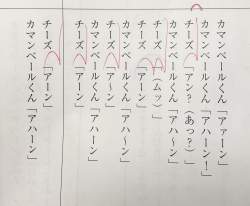 カマンベールくん「アァーン」
カマンベールくん「アハーン！」
チーズ「アン？（あっ？）」
カマンベールくん「アハ～ン」
チーズ「（ムッ）」
チーズ「アーン」
カマンベールくん「アハ～ン」
チーズ「ア～ン」
カマンベールくん「アハーン」
チーズ「アーン」
カマンベールくん「アハーン」
チーズ「アーン」